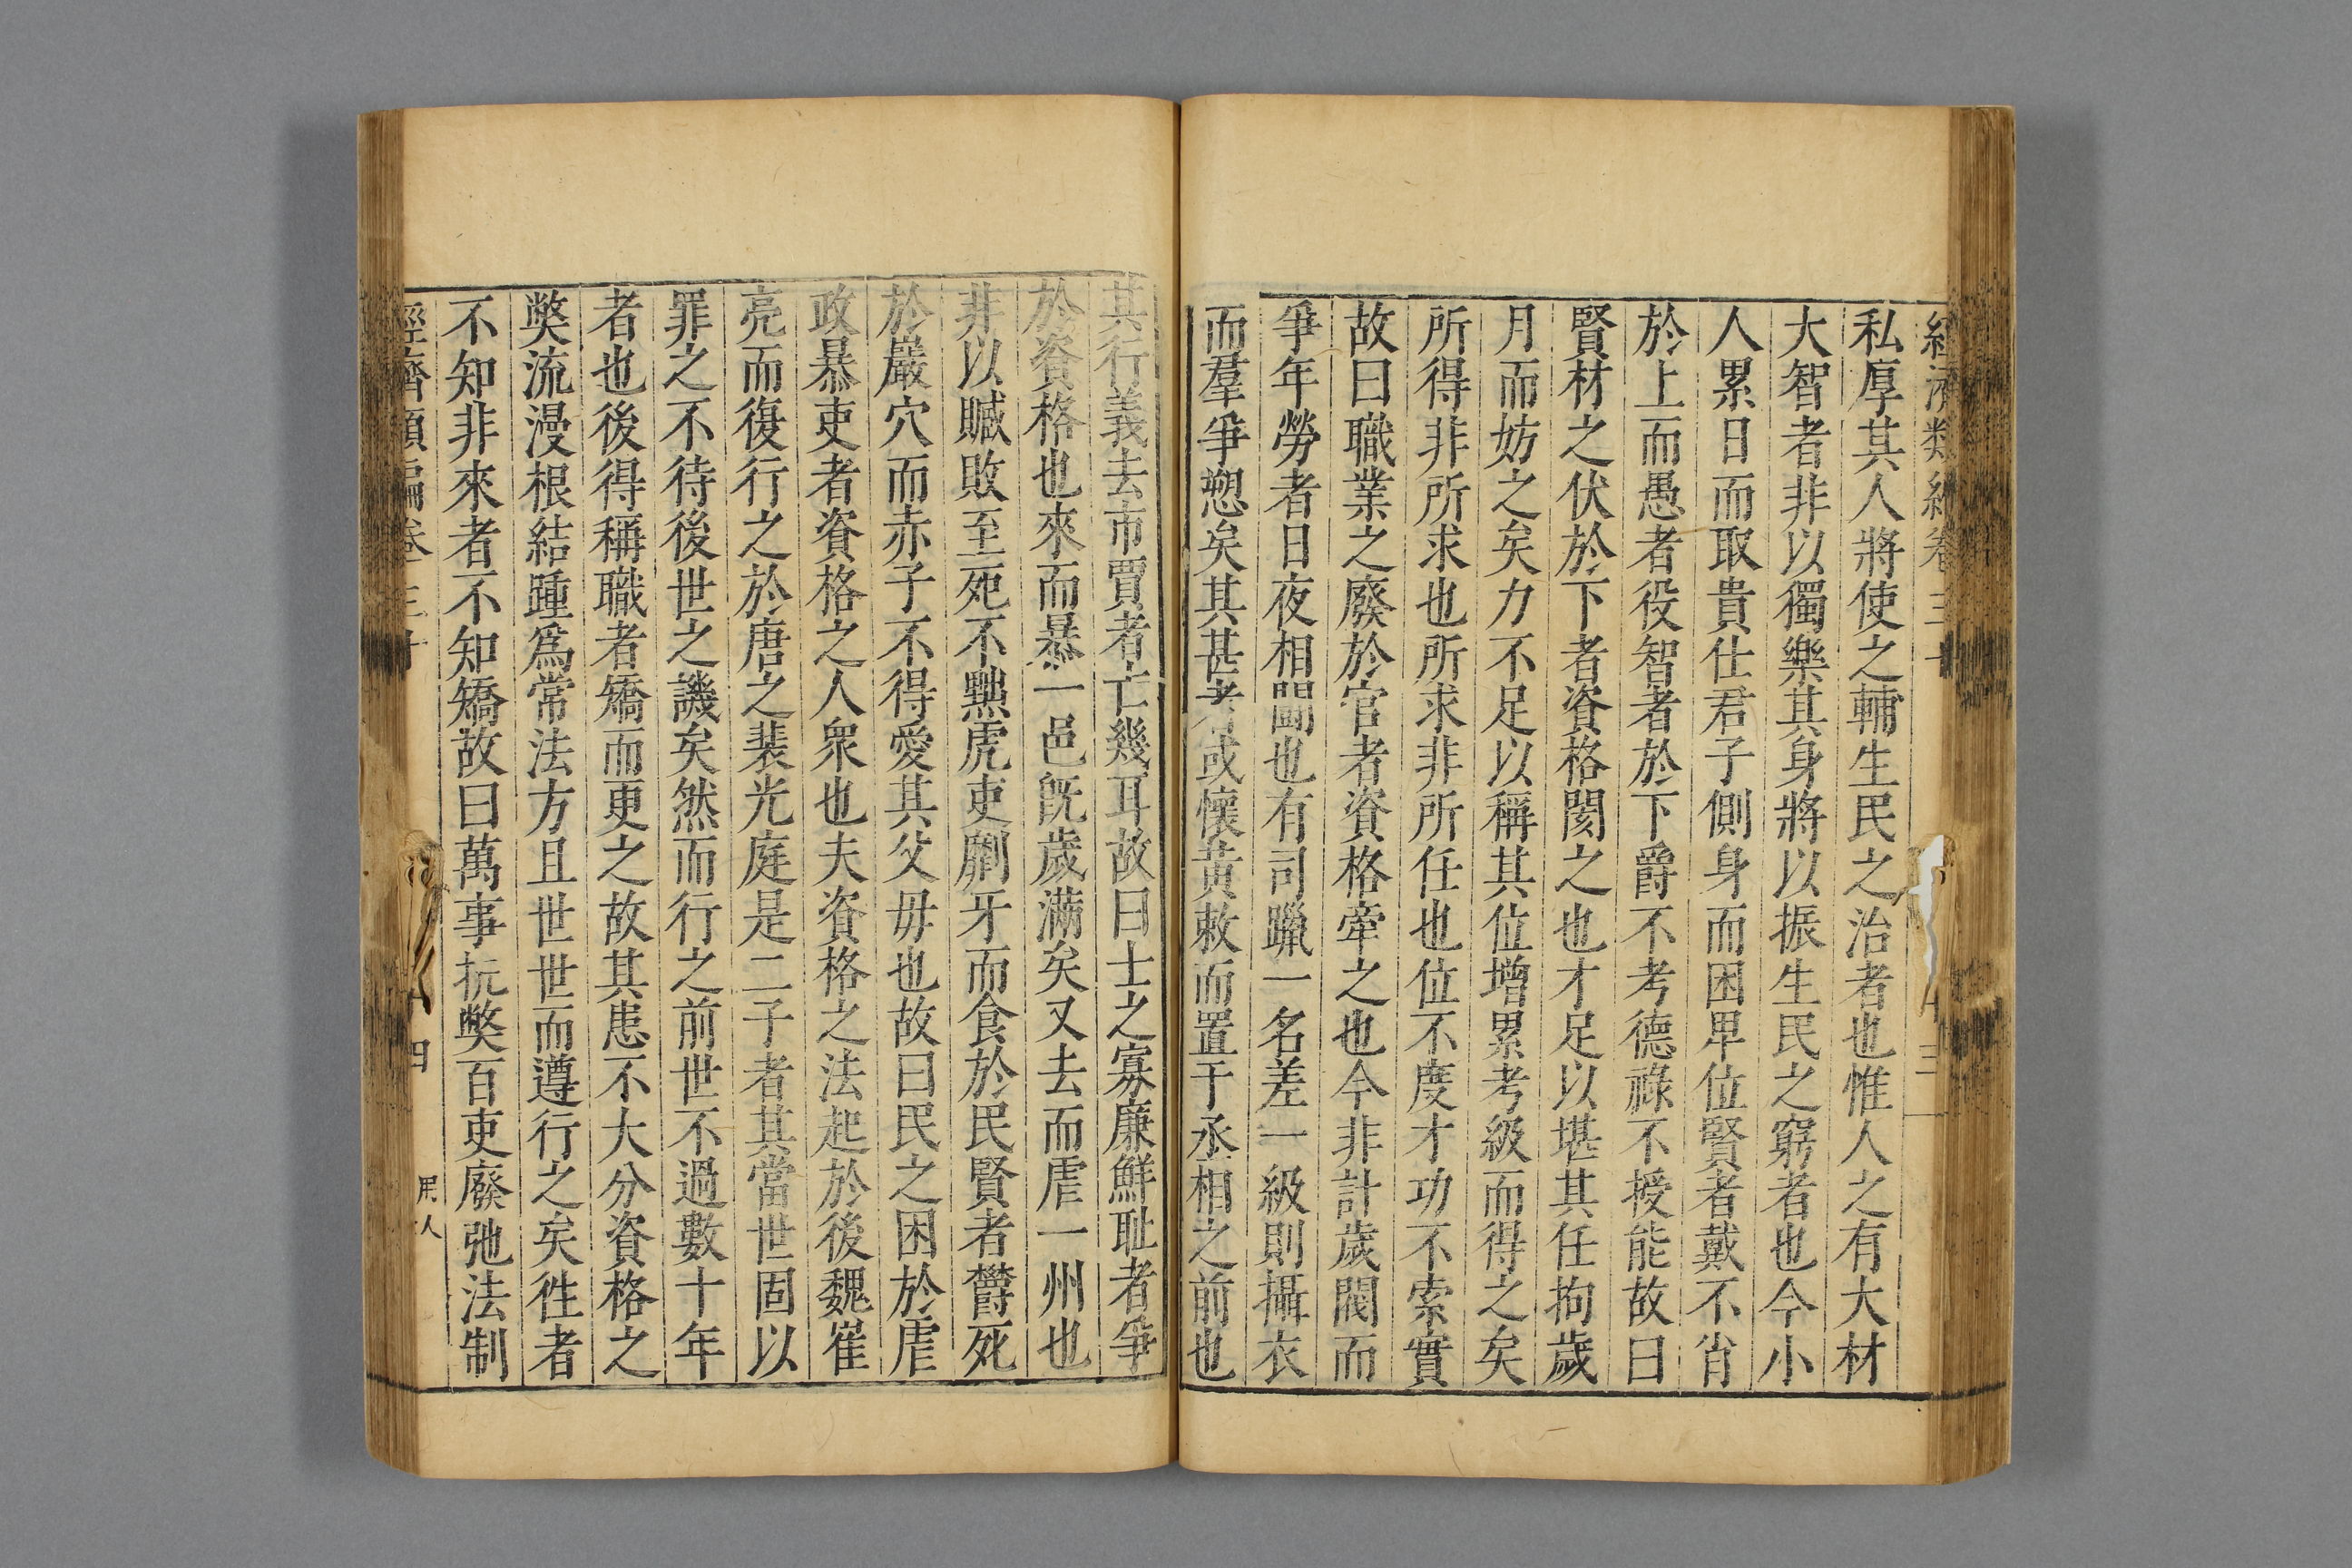 經濟類編卷三十
私厚其人將使之輔生民之治者也惟人之有大材
大智者非以獨樂其身將以振生民之窮者也今小
人累日而取貴仕君子側身而困卑位賢者戴不肖
於上而愚者役智者於下爵不考德祿不授能故曰
賢材之伏於下者資格閡之也才足以堪其任拘歲
月而妨之矣力不足以稱其位增累考級而得之矣
所得非所求也所求非所任也位不度才功不索實
故曰職業之廢於官者資格牽之也今非計歲閥而
爭年勞者日夜相鬪也有司躐一名差一級則攝衣
而羣爭愬矣其甚者或懷黃敕而置于丞相之前也
其行義去市賈者亡幾耳故曰士之寡廉鮮耻者爭
於資格也來而暴一邑旣歲滿矣又去而虐一州也
非以贓敗至死不黜虎吏劘牙而食於民賢者欝死
於巖穴而赤子不得愛其父毋也故曰民之困於虐
政暴吏者資格之人衆也夫資格之法起於後魏崔
亮而復行之於唐之裴光庭是二子者其當世固以
罪之不待後世之譏矣然而行之前世不過數十年
者也後得稱職者矯而更之故其患不大分資格之
獘流漫根結踵爲常法方且世世而遵行之矣徃者
不知非來者不知矯故曰萬事抏獘百吏廢弛法制
經濟類編卷三十
四
用人